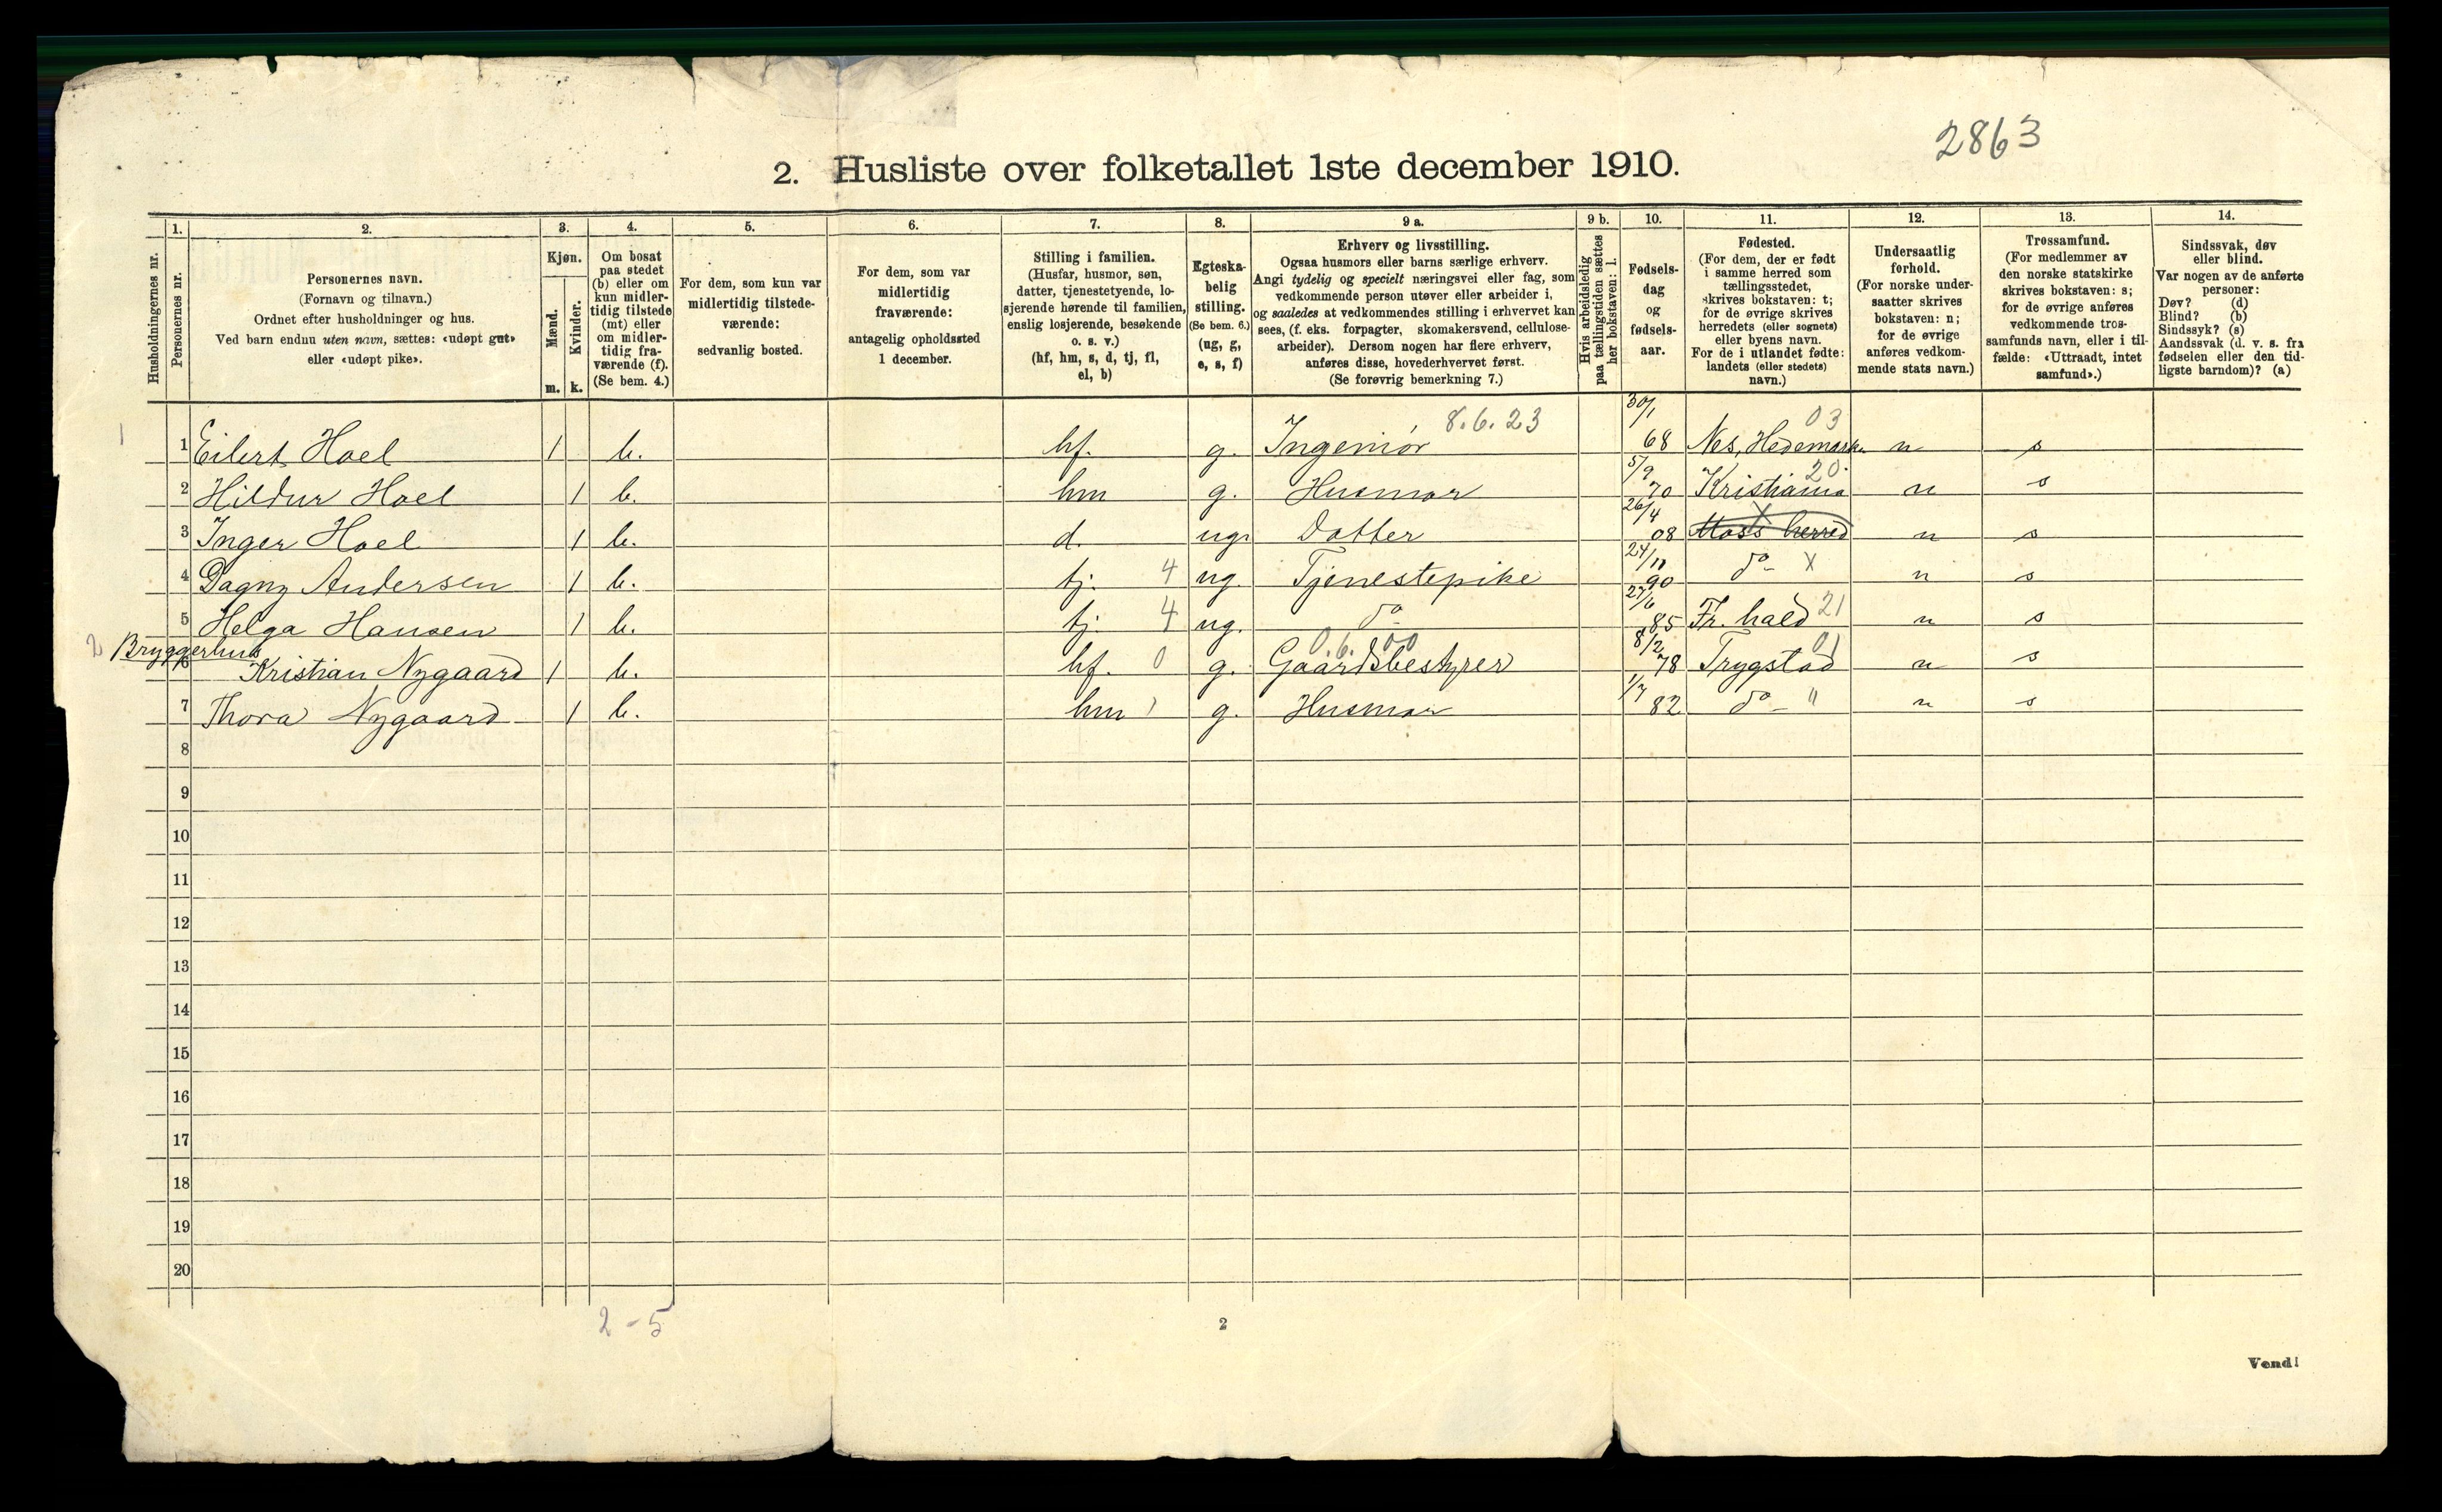 2863
2. Husliste over folketallet 1ste december 1910.
Husholdningernes nr.
1.
Personernes nr.
2.
Personernes navn.
(Fornavn og tilnavn.)
Ordnet efter husholdninger og hus.
Ved barn endnu uten navn, sættes: «udøpt gut»
eller «udøpt pike».
3.
Kjøn.
Mænd.
Kvinder.
m. k.
4.
Om bosat
paa stedet
(b) eller om
kun midler-
tidig tilstede
(mt) eller
om midler-
tidig fra-
værende (f).
(Se bem. 4.)
5.
For dem, som kun var
midlertidig tilstede-
værende:
sedvanlig bosted.
6.
For dem, som var
midlertidig
fraværende:
antagelig opholdssted
1 december.
7.
Stilling i familien.
(Husfar, husmor, søn,
datter, tjenestetyende, lo-
sjerende hørende til familien,
enslig losjerende, besøkende
o. s. v.)
(hf, hm, s, d, tj, fl,
el, b)
8.
Egteska-
belig
stilling.
(Se bem. 6.)
(ug, g,
e, s, f)
9 a.
Erhverv og livsstilling.
Ogsaa husmors eller barns særlige erhverv.
Angi tydelig og specielt næringsvei eller fag, som
vedkommende person utøver eller arbeider i,
og saaledes at vedkommendes stilling i erhvervet kan
sees, (f. eks. forpagter, skomakersvend, cellulose-
arbeider). Dersom nogen har flere erhverv,
anføres disse, hovederhvervet først.
(Se forøvrig bemerkning 7.)
9 b.
Hvis arbeidsledig
paa tællingstiden sættes
her bokstaven: l.
10.
Fødsels-
dag
og
fødsels-
aar.
11.
Fødested.
(For dem, der er født
i samme herred som
tællingsstedet,
skrives bokstaven: t;
for de øvrige skrives
herredets (eller sognets)
eller byens navn.
For de i utlandet fødte:
landets (eller stedets)
navn.)
12.
Undersaatlig
forhold.
(For norske under-
saatter skrives
bokstaven: n;
for de øvrige
anføres vedkom-
mende stats navn.)
13.
Trossamfund.
(For medlemmer av
den norske statskirke
skrives bokstaven: s;
for de øvrige anføres
vedkommende tros-
samfunds navn, eller i til-
fælde: «Uttraadt, intet
samfund».)
14.
Sindssvak, døv
eller blind.
Var nogen av de anførte
personer:
Døv? (d)
Blind? (b)
Sindssyk? (s)
Aandssvak (d. v. s. fra
fødselen eller den tid-
ligste barndom)? (a)
8.6.23 30/1 03
1 1 Eilert Hoel 1 b. hf. g. Ingeniør 68 Nes, Hedemark. n s
5/9 20.
2 Hildur Hoel 1 b. hm g. Husmor 70 Kristiania n s
26/4 X
3 Inger Hoel 1 b. d. ug. Datter 08 Moss herred n s
24/11
4 Dagny Andersen 1 b. tj. 4 ug. Tjenestepike 90 do X n s
27/6
5 Helga Hansen 1 b. tj. 4 ug. do 85 Fr. hald 21 n s
2 Bryggerhus 0.6.00 8/2 01
6 Kristian Nygaard 1 b. hf. 0 g. Gaardsbestyrer 78 Trygstad n s
1/7
7 Thora Nygaard 1 b. hm 1 g. Husmor 82 do " n s
8
9
10
11
12
13
14
15
16
17
18
19
20
2 - 5
2
Vend!